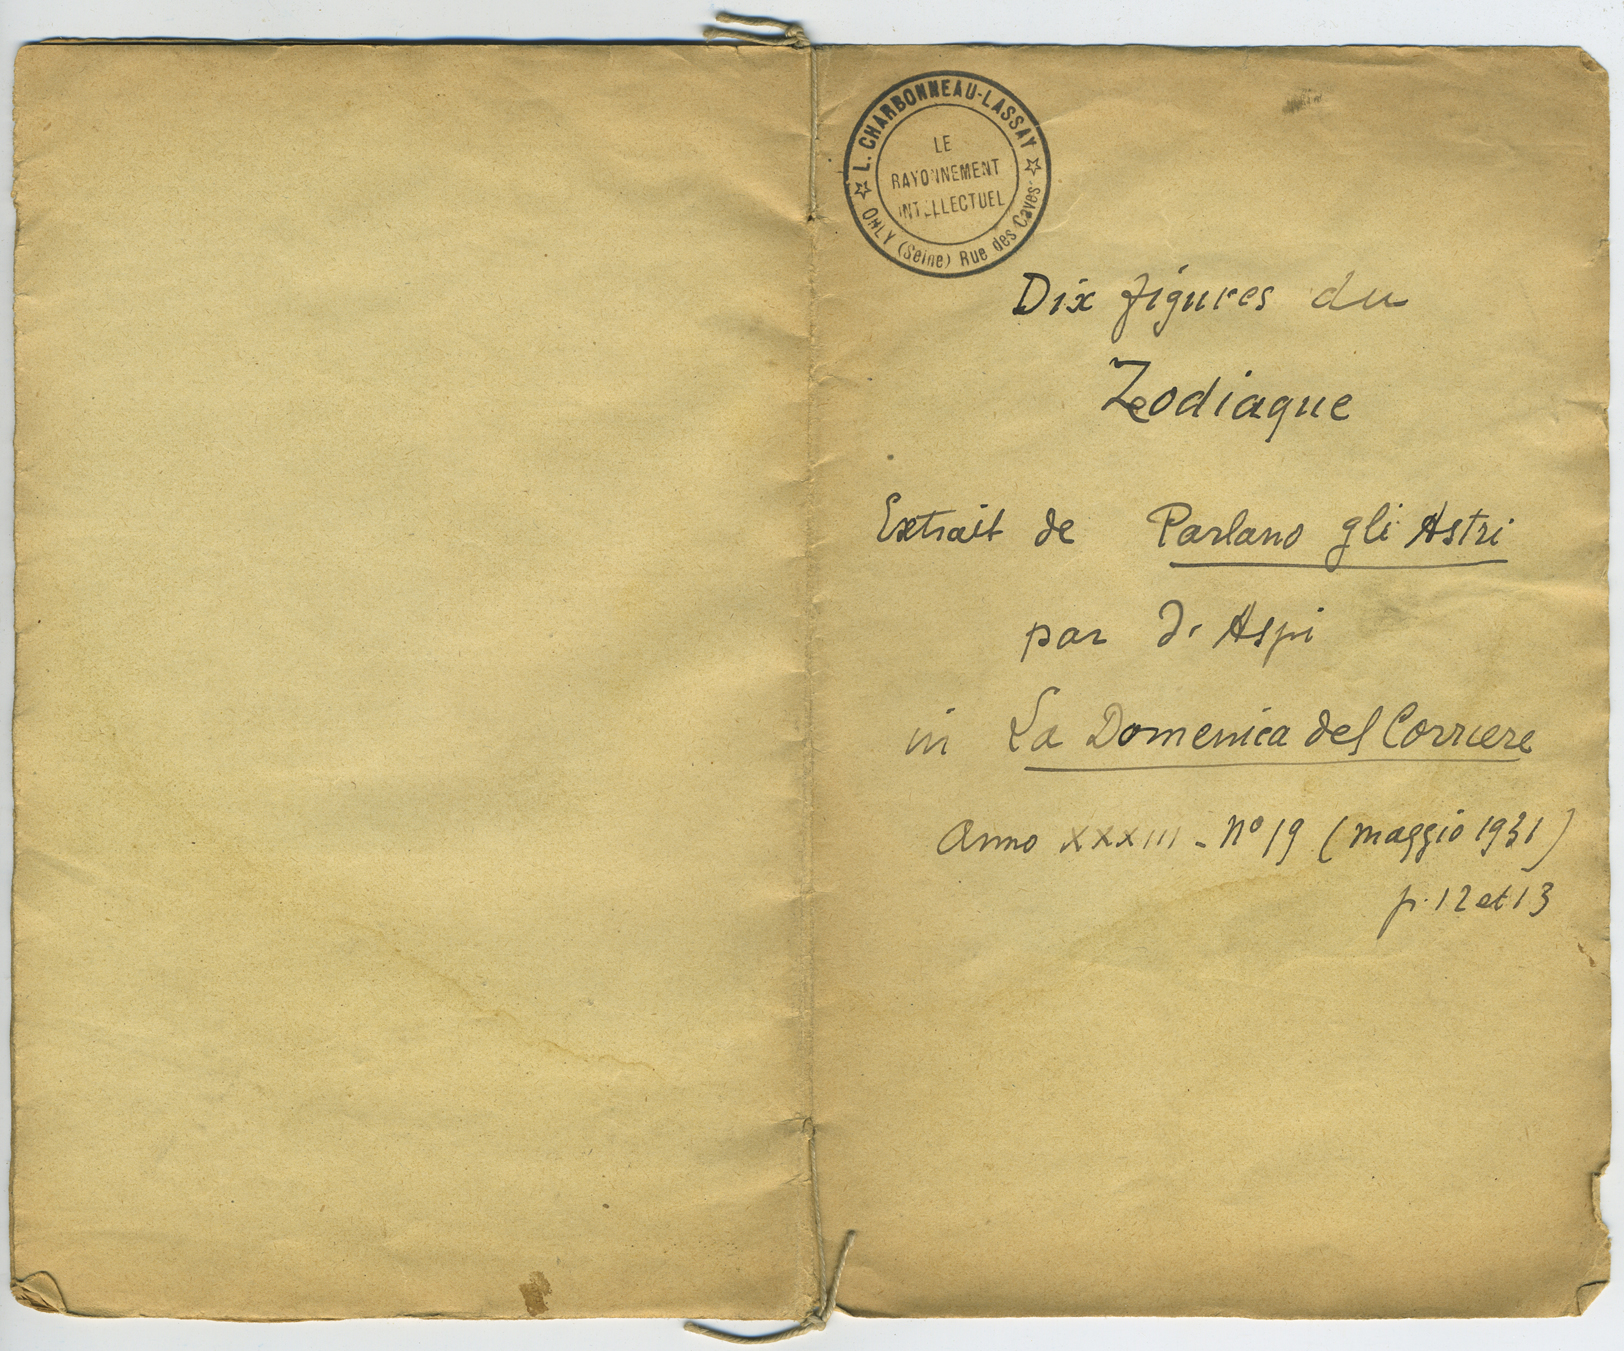 ★ L. CHARBONNEAU-LASSAY ★
ORLY (Seine) Rue des Caves
LE
RAYONNEMENT
INTELLECTUEL
Dix figures du
Zodiaque
Extrait de Parlano gli Astri
par Dr Aspi
in La Domenica del Corriere
Anno XXXIII - No 19 (maggio 1931)
p. 12 et 13